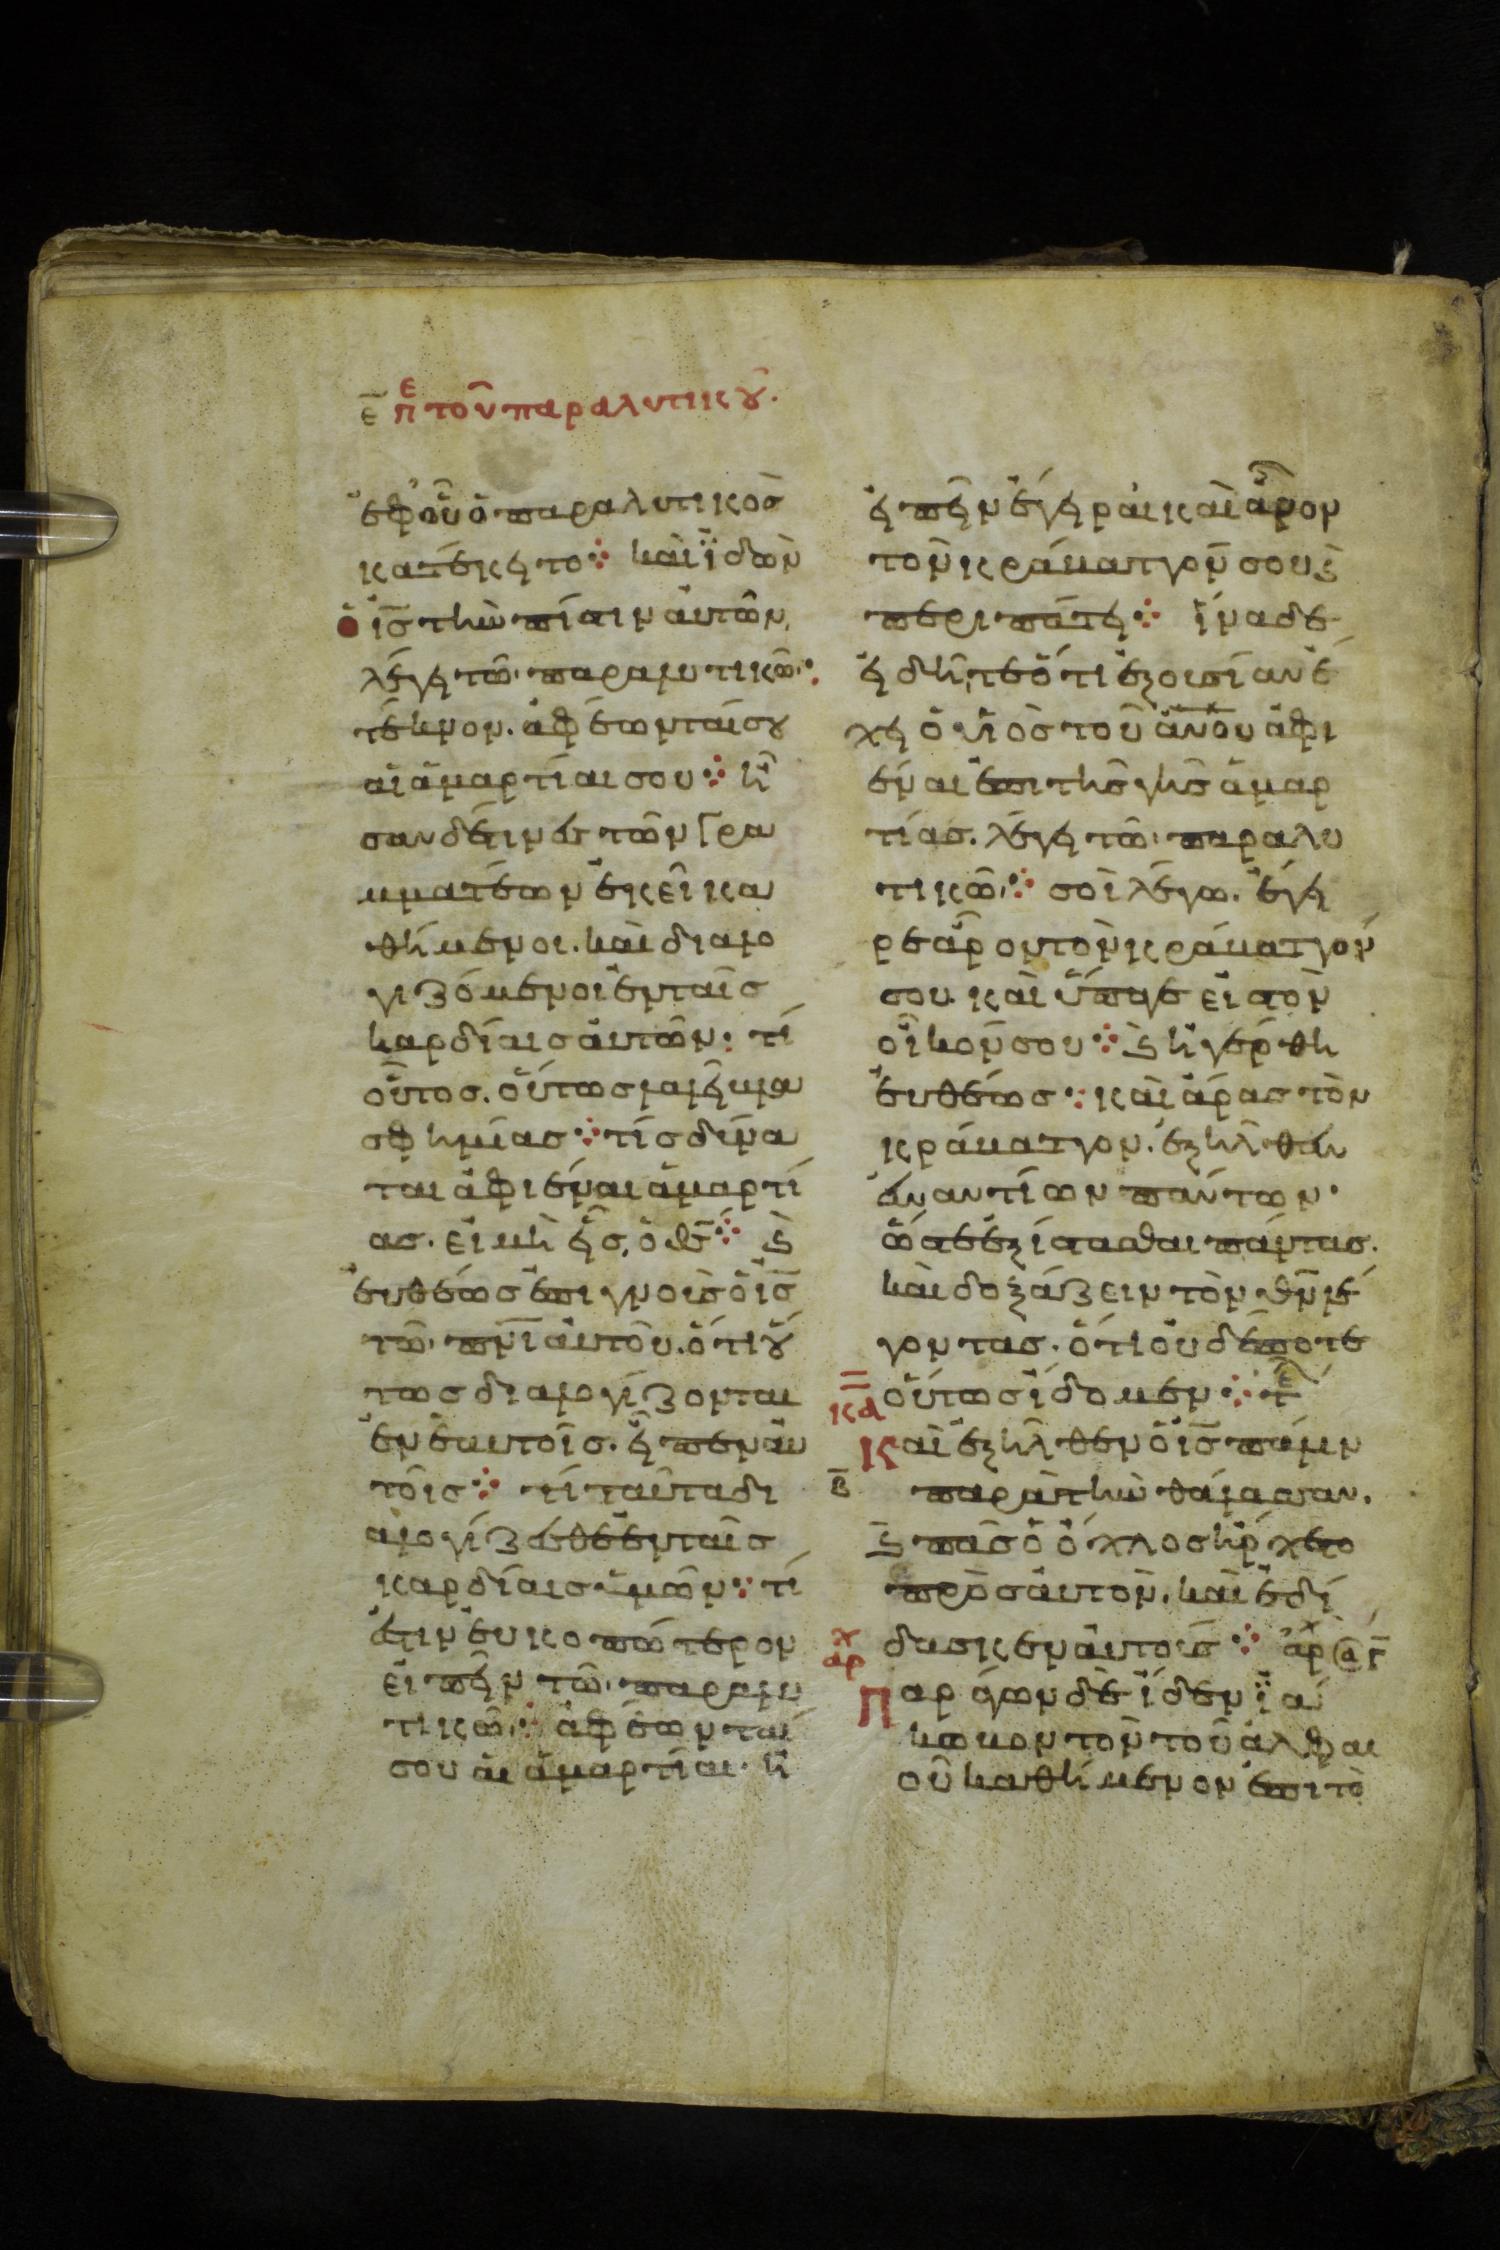 ε̅ πε τοῦ παραλυτικοῦ.
ἐφ οὗ ὁ παραλυτικὸσ
κατέκητο· καὶ ἰδὼν
ὁ ι̅σ̅ τὴν πίστιν αὐτῶν,
λέγη τῶ παραλυτικῶ·
τέκνον. ἀφέωνταί σου
αἱ ἁμαρτίαι σου· ἦ
σαν δέ τινεσ τῶν γρα
μματέων ἐκεῖ κα
θήμενοι. καὶ διαλο
γιζόμενοι ἐν ταῖσ
καρδίαισ αὐτῶν· τί
οὗτοσ. οὕτωσ λαλῆ βλα
σφημίασ· τίσ δύνα
ται ἀφιέναι ἁμαρτί
ασ. εἰ μὴ ἧσ, ὁ θ̅σ̅· ϗ
εὐθέωσ ἐπιγνοὺσ ὁ ι̅σ̅
τῶ π̅ν̅ι̅ αὐτοῦ. ὅτι οὕ
τωσ διαλογίζονται
ἐν ἑαυτοῖσ. ἦπεν αὐ
τοῖσ· τί ταῦτα δι
αλογίζεσθε ἐν ταῖσ
καρδίαισ ὑμῶν· τί
ἐστιν εὐκοπώτερον
εἰπῆν τῶ παραλυ
τικῶ· ἀφέωνταί
σου αἱ ἁμαρτίαι· ἢ
ἠπῆν ἔγηραι καὶ ἆρον
τὸν κράβαττόν σου ϗ
περιπάτη· ἵνα δὲ
ἠδῆτε ὅτι ἐξουσίαν ἔ
χη ὁ υἱὸσ τοῦ α̅ν̅ο̅υ̅ ἀφι
έναι ἐπι τῆσ γῆσ ἁμαρ
τίασ. λέγη τῶ παραλυ
τικῶ· σοὶ λέγω. ἔγη
ρε ἆρον τὸν κράβαττόν
σου. καὶ ὕπαγε εἰσ τὸν
οἶκόν σου· ϗ ἠγέρθη
εὐθέωσ· καὶ ἄρασ τὸν
κράβαττον. ἐξῆλθεν
ἐναντίων πάντων·
ὥστε ἐξίστασθαι πάντασ.
καὶ δοξάζειν τὸν θ̅ν̅ λέ
γοντασ. ὅτι οὐδέποτε
οὕτωσ ἴδομεν· τελ
κα
καὶ ἐξῆλθεν ὁ ι̅σ̅ πάλιν
β̅ παρὰ τὴν θάλασσαν.
ϗ πᾶσ ὁ ὄχλοσ ἤρχετο
πρὸσ αὐτὸν. καὶ ἐδί
δασκεν αὐτούσ· ἀρχ
αρχ
Παράγων δὲ ἴδεν ια
κωβον τὸν τοῦ ἀλφαι
οῦ καθήμενον ἐπι τὸ